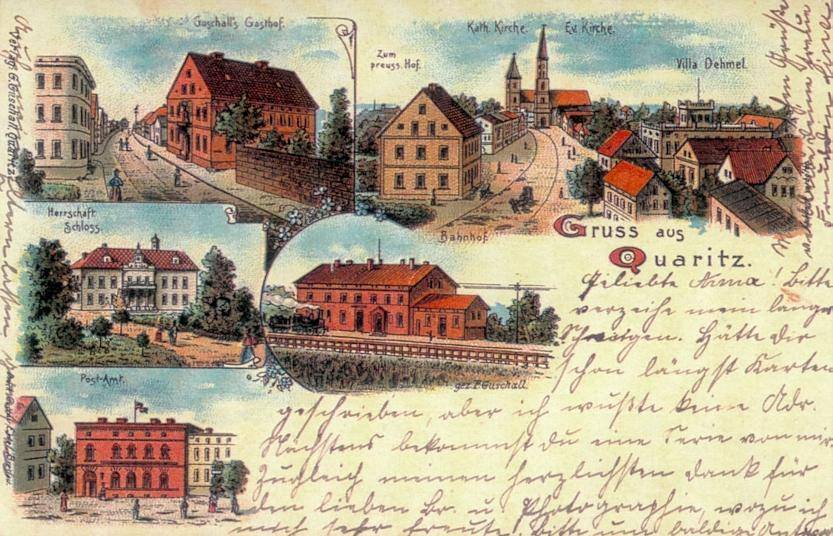 Guschall's Gasthof.
Zum
preuss. Hof.
Kath. Kirche. Ev. Kirche.
Villa Dehmel.
Herrschaft.
Schloss.
Bahnhof.
Gruss aus
Quaritz.
Post-Amt.
gez. P. Guschall.
Verlag G. Guschall Quaritz
Geliebte Anna! Bitte
verzeihe mein langes
Schweigen. Hätte dir
schon längst Karten
geschrieben, aber ich wußte keine Adr.
Nächstens bekommst du eine Serie von mir.
Zugleich meinen herzlichsten Dank für
den lieben Br. u. Photographie, wozu ich
mich sehr freute. Bitte um baldige